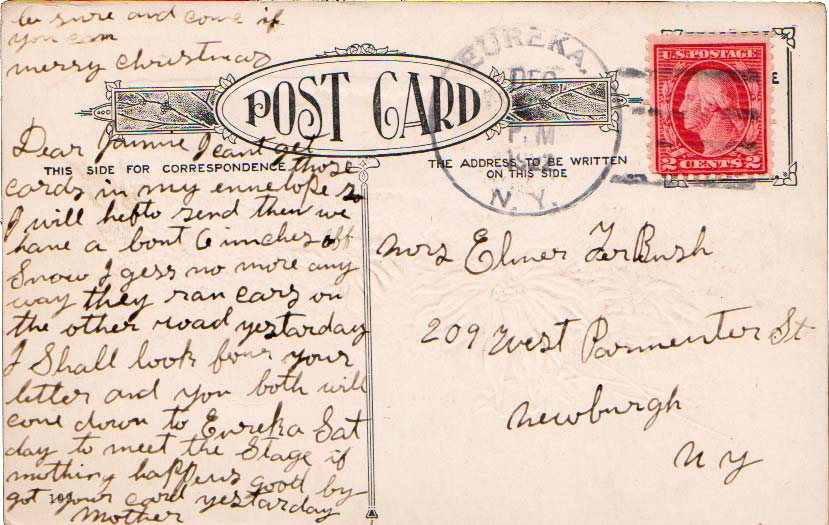 be sure and come if
you can
merry christmas
POST CARD
THIS SIDE FOR CORRESPONDENCE
THE ADDRESS TO BE WRITTEN
ON THIS SIDE
EUREKA
DEC
P.M
N.Y.
U.S. POSTAGE
2 CENTS 2
Dear Jannie I cant get
those
cards in my envelope so
I will hefto send them we
have a bout 6 inches off
Snow I gess no more any
way they ran cars on
the other road yestarday
I Shall look four your
letter and you both will
come down to Eureka Sat
day to meet the Stage if
nothing happens good by
got your card yestarday
Mother
Mrs Elmer TerBush
209 West Parmenter St
Newburgh
N Y